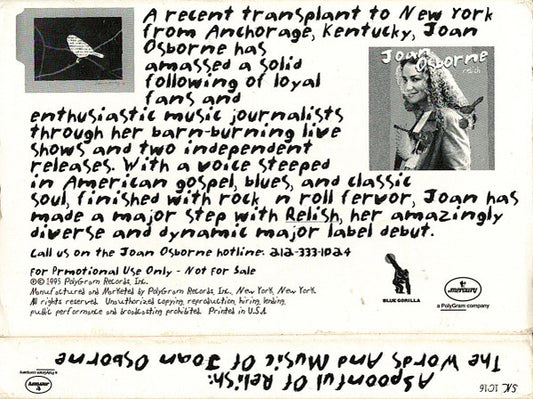 A recent transplant to New York
from Anchorage, Kentucky, Joan
Osborne has
amassed a solid
following of loyal
fans and
enthusiastic music journalists
through her barn-burning live
shows and two independent
releases. With a voice steeped
in American gospel, blues, and classic
soul, finished with rock n roll fervor, Joan has
made a major step with Relish, her amazingly
diverse and dynamic major label debut.
Joan
Osborne
relish
Call us on the Joan Osborne hotline: 212-333-1024
For Prmotional Use Only - Not For Sale
℗© 1995 PolyGram Records, Inc.
Manufactured and Marketed by PolyGram Records, Inc., New York, New York.
All rights reserved. Unauthorized copying, reproduction, hiring, lending,
public performance and broadcasting prohibited. Printed in U.S.A.
BLUE GORILLA
mercury
a PolyGram company
A Spoonful Of Relish:
The Words And Music Of Joan Osborne
mercury
a PolyGram company
SK 1016